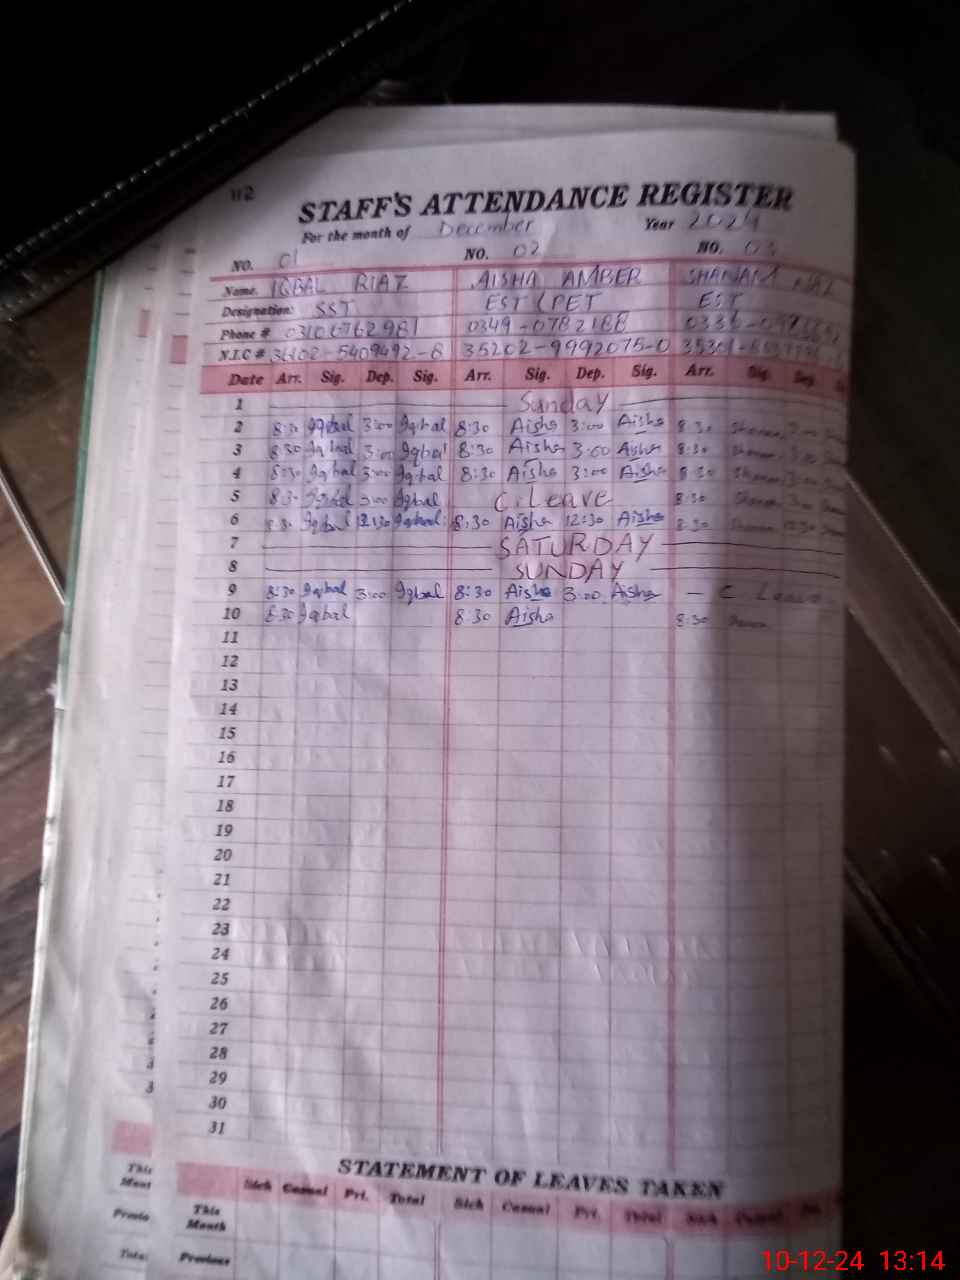 112
STAFF'S ATTENDANCE REGISTER
For the month of December Year 2024
NO. 01 NO. 02 NO. 03
Name. IQBAL RIAZ AISHA AMBER SHANAM
Designation: SST EST (PET EST
Phone # 03106762981 0349-0782188
N.I.C # 35202-9992075-0
Date Arr. Sig. Dep. Sig. Arr. Sig. Dep. Sig. Arr. Sig. Dep.
1 Sunday
2 8:30 Iqbal 3:00 Iqbal 8:30 Aisha 3:00 Aisha 8:30
3 8:30 Iqbal 3:00 Iqbal 8:30 Aisha 3:00 Aisha 8:30
4 8:30 Iqbal 3:00 Iqbal 8:30 Aisha 3:00 Aisha 8:30
5 8:30 Iqbal 3:00 Iqbal C.Leave 8:30
6 8:30 Iqbal 12:30 Iqbal 8:30 Aisha 12:30 Aisha 8:30
7 SATURDAY
8 SUNDAY
9 8:30 Iqbal 3:00 Iqbal 8:30 Aisha 3:00 Aisha - C Leave
10 8:30 Iqbal 8:30 Aisha 8:30
11
12
13
14
15
16
17
18
19
20
21
22
23
24
25
26
27
28
29
30
31
STATEMENT OF LEAVES TAKEN
Sick Casual Pvt. Total Sick Casual Pvt. Total Sick Casual
This Month
Previous
10-12-24 13:14